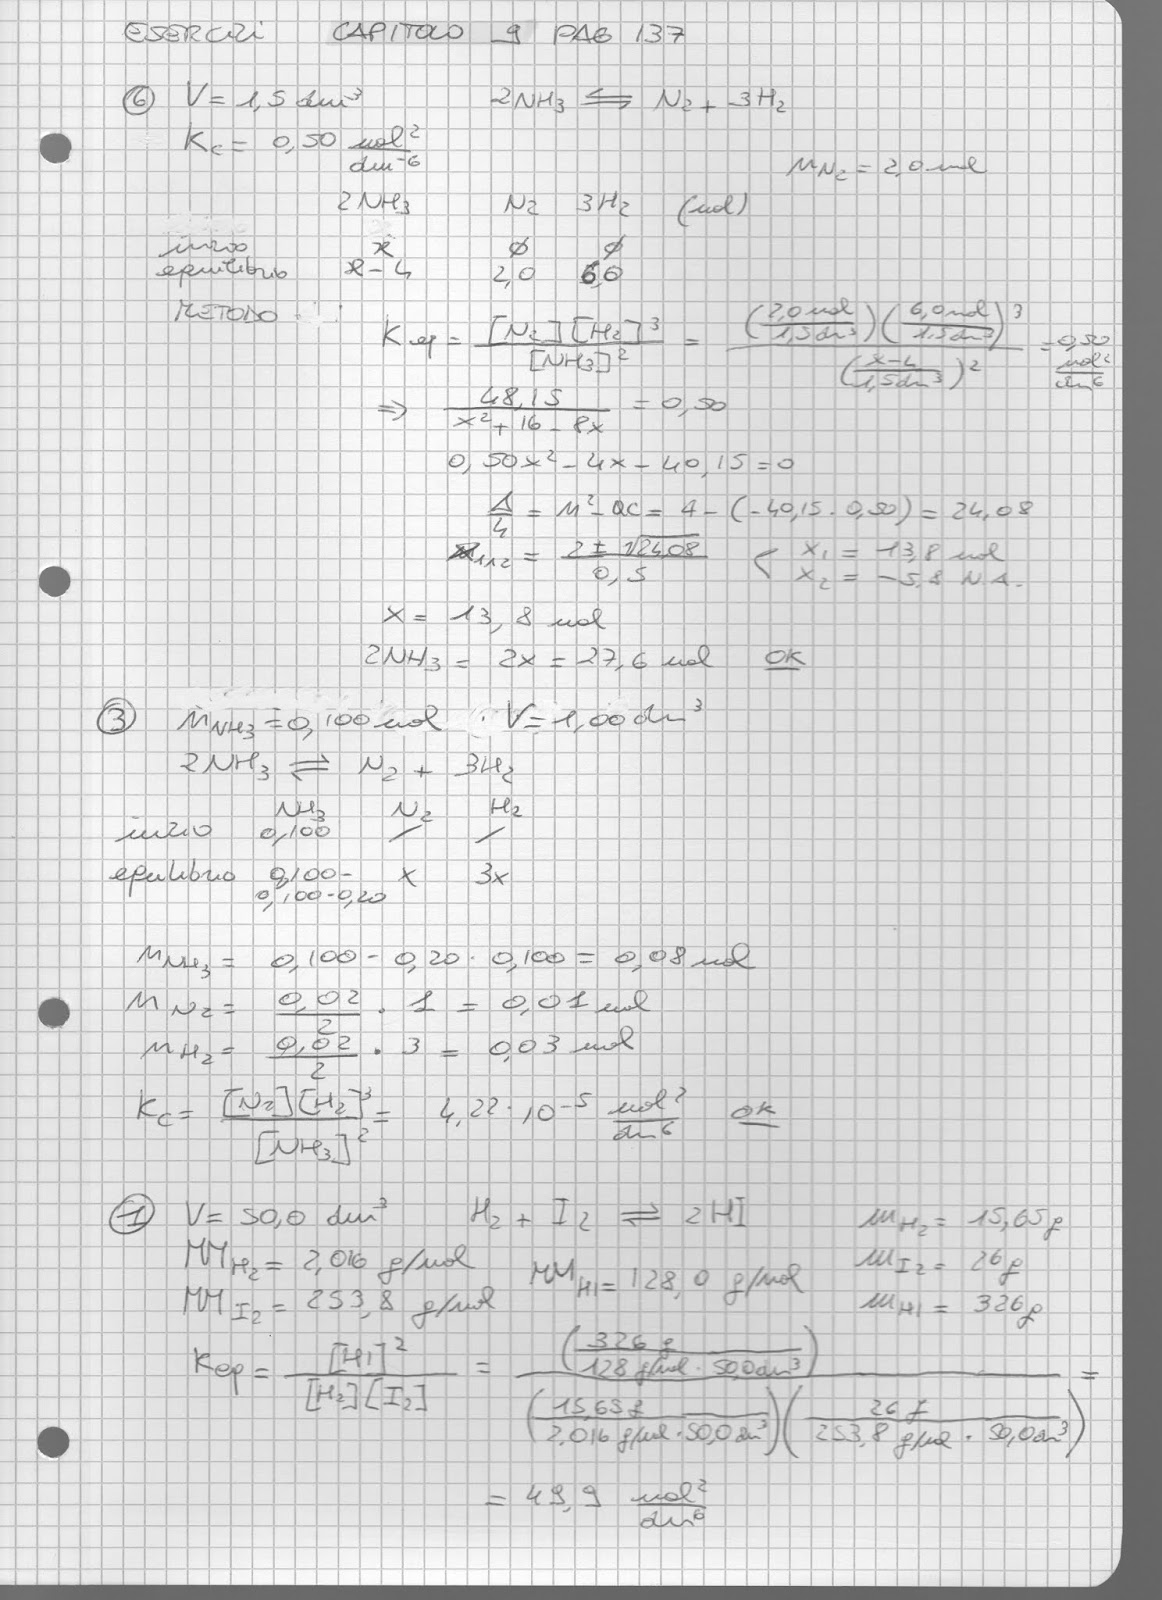 ESERCIZI CAPITOLO 9 PAG 137
⑥ V = 1,5 dm³ 2NH₃ ⇌ N₂ + 3H₂
Kc = 0,50 mol²/dm⁻⁶
nN₂ = 2,0 mol
2NH₃ N₂ 3H₂ (mol)
inizio x ∅ ∅
equilibrio x-4 2,0 6,0
METODO
Keq = [N₂][H₂]³/[NH₃]² = (2,0 mol/1,5 dm³)(6,0 mol/1,5 dm³)³/(x-4/1,5 dm³)² = 0,50 mol²/dm⁶
⇒ 48,15/x² + 16 - 8x = 0,50
0,50x² - 4x - 40,15 = 0
Δ/4 = M² - ac = 4 - (-40,15 · 0,50) = 24,08
x₁,₂ = 2 ± √24,08/0,5 < x₁ = 13,8 mol
x₂ = -5,8 N.A.
x = 13,8 mol
2NH₃ = 2x = 27,6 mol OK
③ nNH₃ = 0,100 mol · V = 1,00 dm³
2NH₃ ⇌ N₂ + 3H₂
NH₃ N₂ H₂
inizio 0,100 / /
equilibrio 0,100- x 3x
0,100-0,20
nNH₃ = 0,100 - 0,20 · 0,100 = 0,08 mol
nN₂ = 0,02/2 · 1 = 0,01 mol
nH₂ = 0,02/2 · 3 = 0,03 mol
Kc = [N₂][H₂]³/[NH₃]² = 4,22 · 10⁻⁵ mol²/dm⁶ OK
① V = 50,0 dm³ H₂ + I₂ ⇌ 2HI mH₂ = 15,65 g
MMH₂ = 2,016 g/mol MMHI = 128,0 g/mol mI₂ = 26 g
MMI₂ = 253,8 g/mol mHI = 326 g
Keq = [HI]²/[H₂][I₂] = (326 g/128 g/mol · 50,0 dm³)/(15,65 g/2,016 g/mol · 50,0 dm³)(26 g/253,8 g/mol · 50,0 dm³) =
= 49,9 mol²/dm⁶